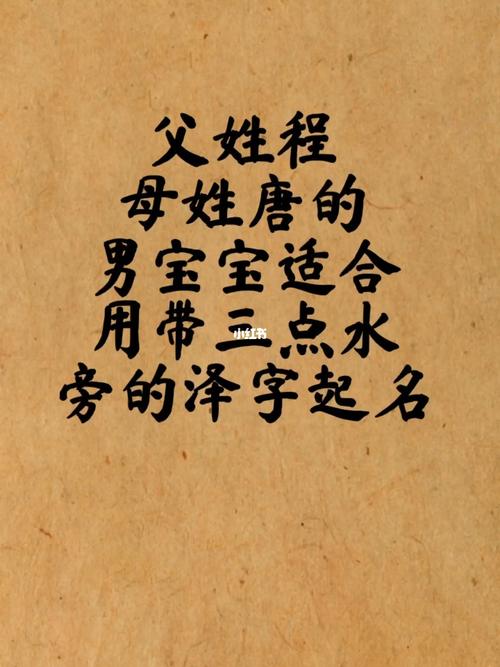 父姓程
母姓唐的
男宝宝适合
用带三点水
小红书
旁的泽字起名